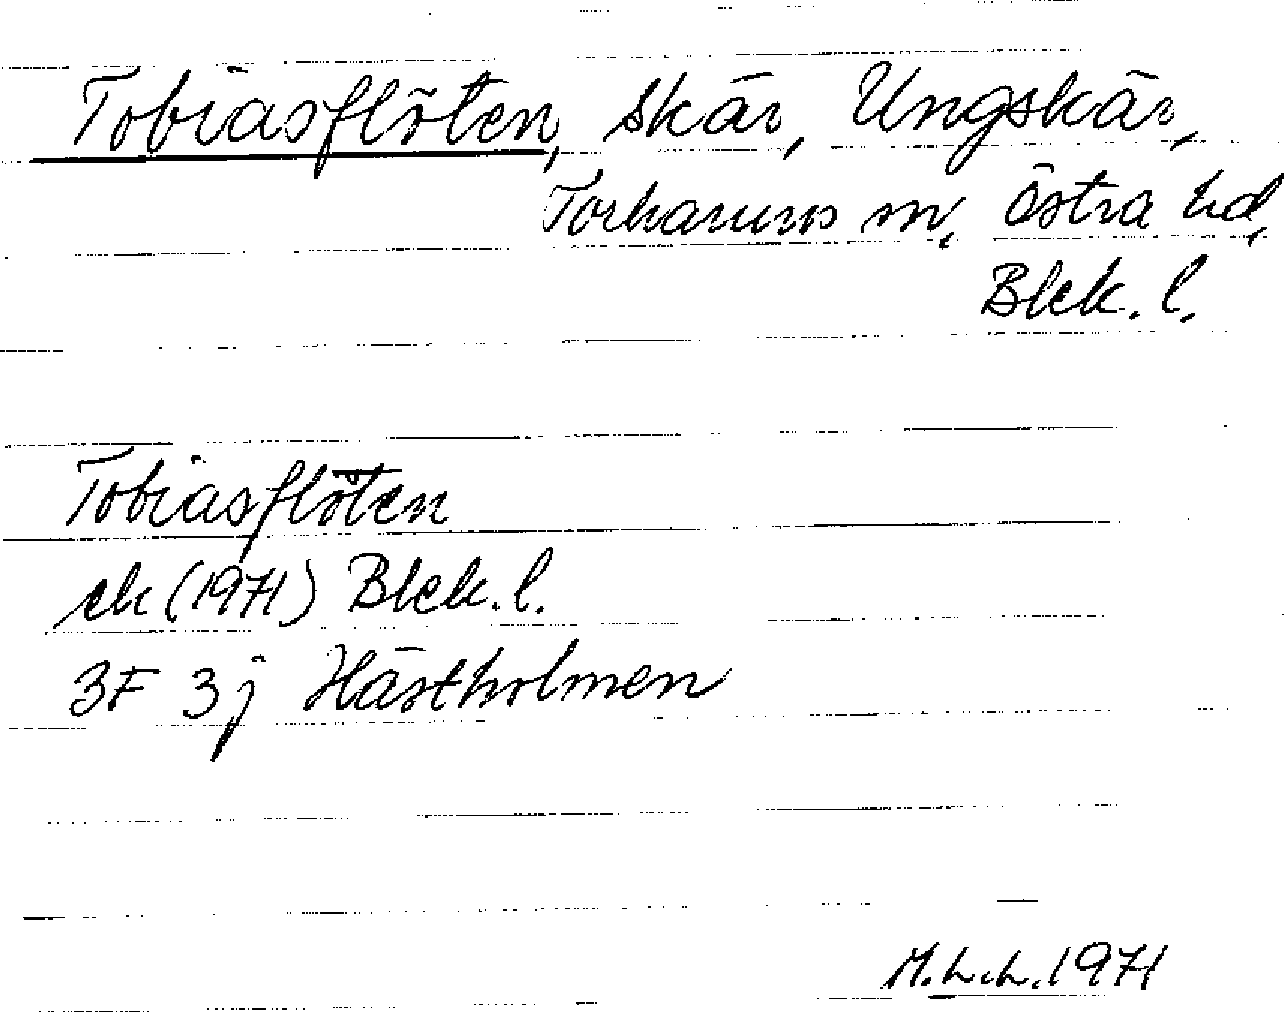 Tobiasflöten, skär, Ungskär,
Torhamns sn, Östra hd,
Blek. l.
Tobiasflöten
ek (1971) Blek. l.
3F 3j Hästholmen
M.L.L. 1971